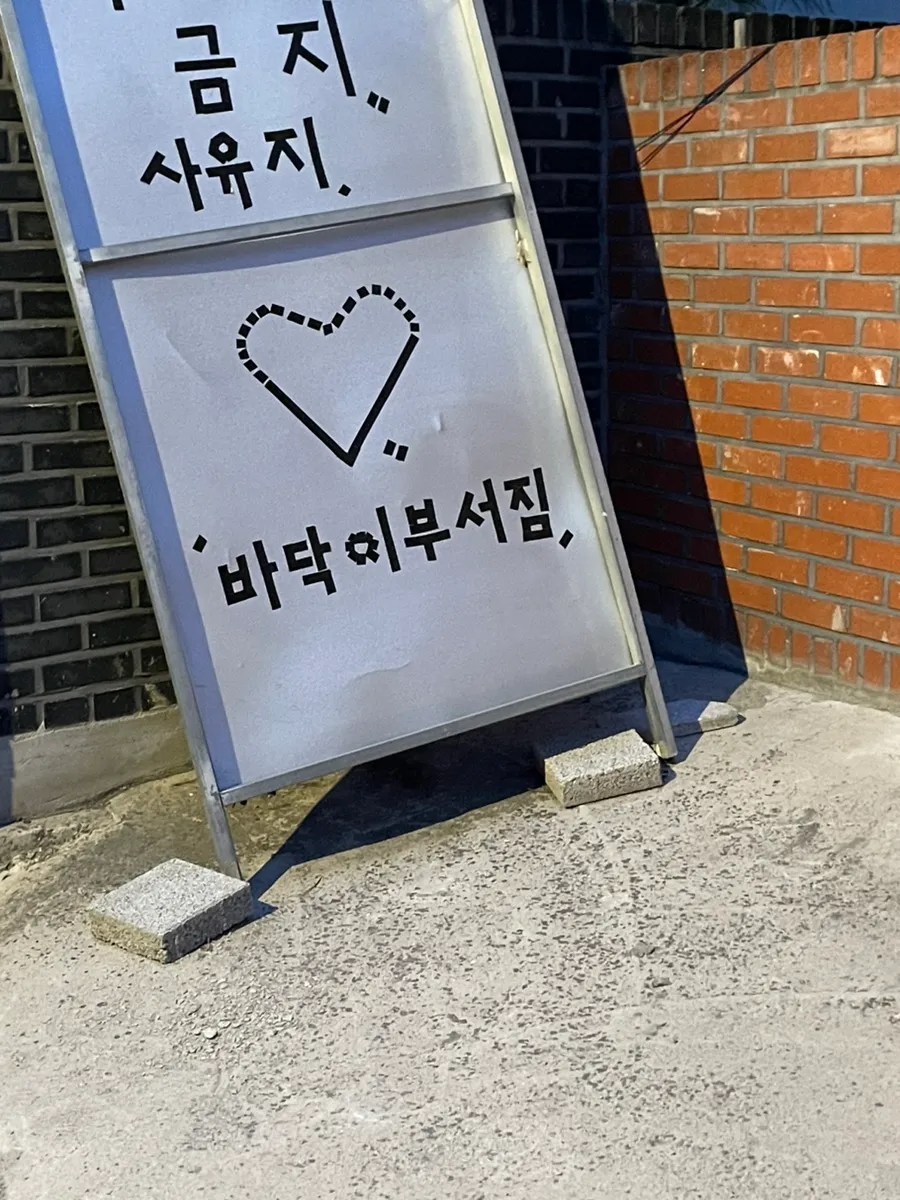 금지"
사유지.
♡"
'바닥이부서짐,